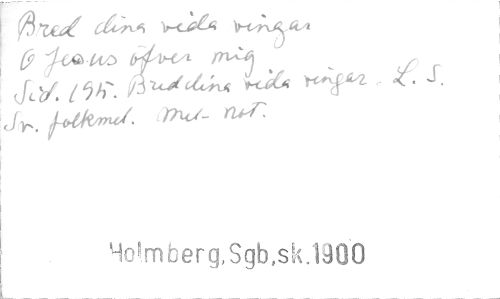 Bred dina vida vingar
O Jesus öfver mig
Sid. 195. Bred dina vida vingar - L. S.
Sv. folkmel. Mel- not.
Holmberg,Sgb,sk.1900